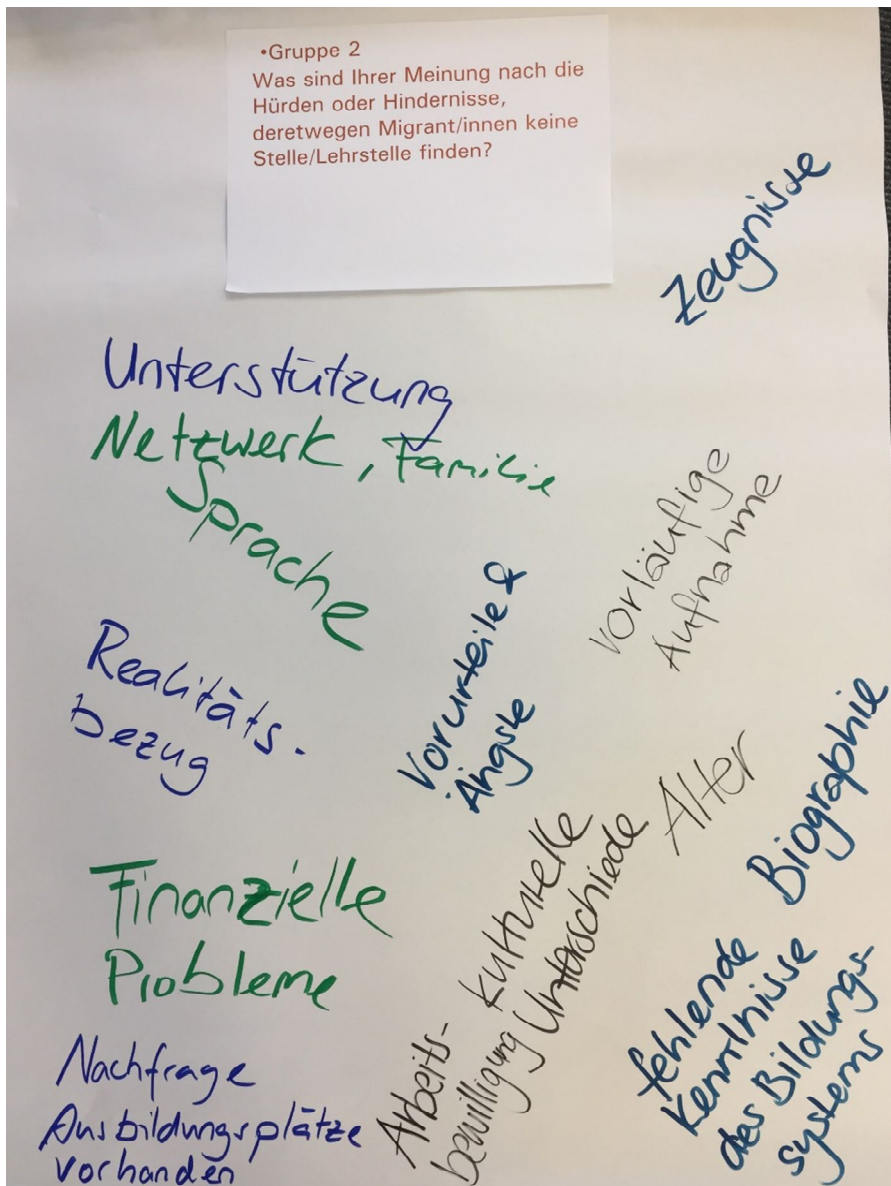 •Gruppe 2
Was sind Ihrer Meinung nach die
Hürden oder Hindernisse,
deretwegen Migrant/innen keine
Stelle/Lehrstelle finden?
Zeugnisse
Unterstützung
Netzwerk, Familie
Sprache
vorläufige
Aufnahme
Vorurteile &
Ängste
Realitäts-
bezug
Alter
Biographie
Finanzielle
Probleme
kulturelle
Unterschiede
Arbeits-
bewilligung
fehlende
Kenntnisse
des Bildungs-
systems
Nachfrage
Ausbildungsplätze
vorhanden